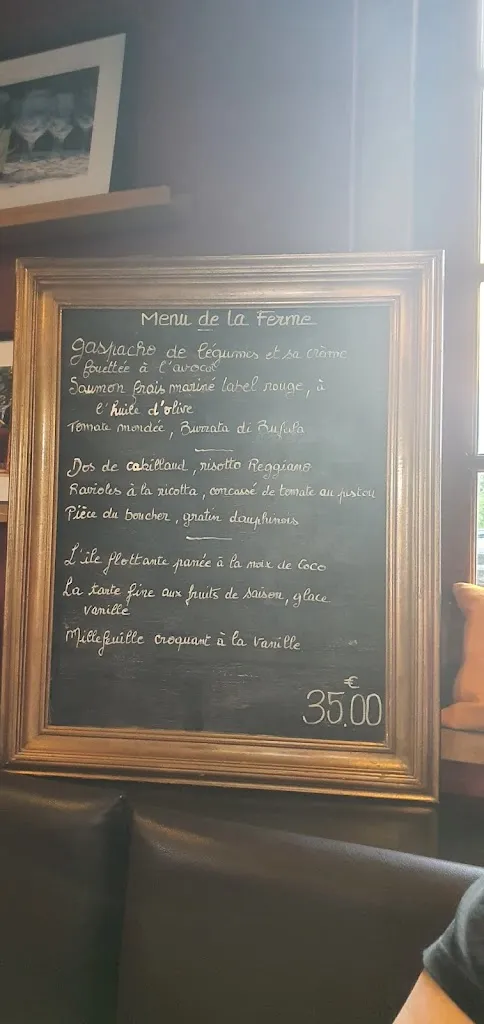 Menu de la Ferme
Gaspacho de légumes et sa crème
fouettée à l'avocat
Saumon frais mariné label rouge, à
l'huile d'olive
Tomate mondée, Burrata di Bufala
Dos de cabillaud, risotto Reggiano
Ravioles à la ricotta, concassé de tomate au pistou
Pièce du boucher, gratin dauphinois
L'ile flottante panée à la noix de Coco
La tarte fine aux fruits de saison, glace
vanille
Millefeuille croquant à la Vanille
€
35.00